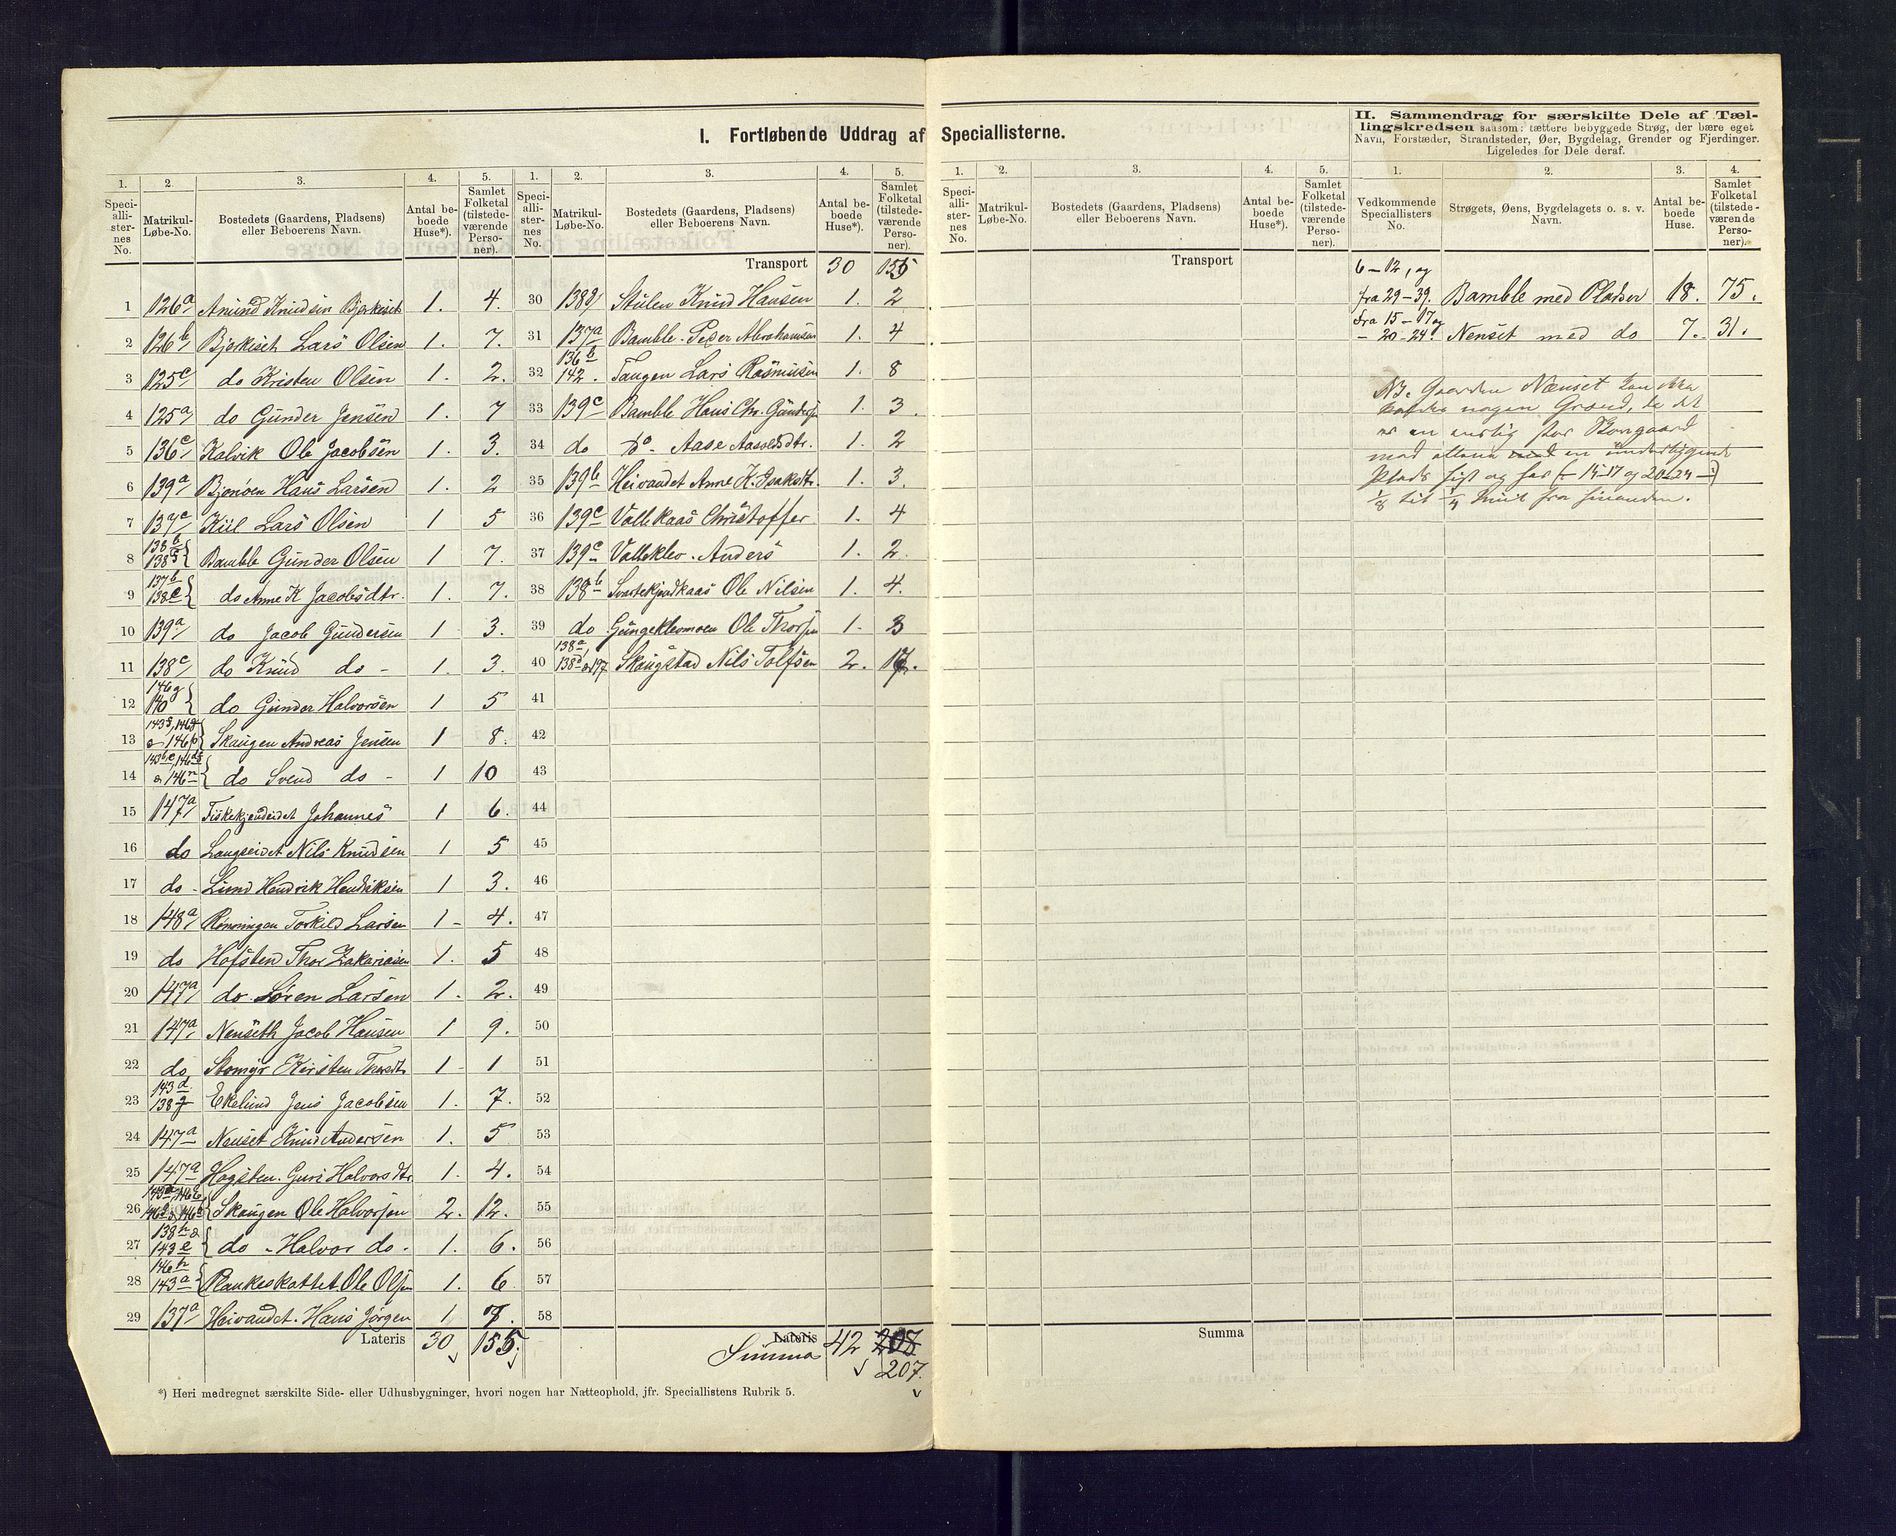 I. Fortløbende Uddrag af Speciallisterne.
II. Sammendrag for særskilte Dele af Tæl-
lingskredsen saasom: tættere bebyggede Strøg, der bære eget
Navn, Forstæder, Strandsteder, Øer, Bygdelag, Grender og Fjerdinger.
Ligeledes for Dele deraf.
1. Speci-alli-ster-nes No. 2. Matrikul-Løbe-No. 3. Bostedets (Gaardens, Pladsens) eller Beboerens Navn. 4. Antal be-boede Huse*). 5. Samlet Folketal (tilstede-værende Perso-ner).
1 126a Amund Knudsen Bjerkeset 1. 4.
2 126b Bjerkeset Lars Olsen 1. 7.
3 125c do Kristen Olsen 1. 2.
4 125a do Gunder Jensen 1. 7
5 136c Kalvik Ole Jacobsen 1. 3.
6 139a Bjonøen Hans Larsen 1. 2
7 137c Kiil Lars Olsen 1 5
8 138b Bamble Gunder Olsen 1 7.
9 137b 138c do Anne K Jacobsdtr. 1. 7.
10 139a do Jacob Gundersen 1 3.
11 138c do Knud do - 1. 3.
12 146g 140 do Gunder Halvorsen 1 5
13 Skaugen Andreas Jensen 1 8.
14 do Svend do - 1 10
15 147a Fiskekjendeidet Johannes 1 6.
16 do Langeidet Nils Knudsen 1 5
17 do - Lund Hendrik Hendriksen 1 3.
18 148a Rønningen Torkild Larsen 1 - 4.
19 do Hofsten Thor Zakariasen 1. 5
20 147a do. Søren Larsen 1. 2.
21 147a Nenseth Jacob Hansen 1 9.
22 do Stomyr Kirsten Thorsdtr 1 - 1
23 143d 138g Ekelund Jens Jacobsen 1. 7.
24 147a Nenset Knud Andersen 1. 5
25 147a Hogsten. Guri Halvorsdtr. 1. 4.
26 Skaugen Ole Halvorsen 2. 12.
27 138h 143e do - Halvor do. 1. 6.
28 146h 143a Plankeskottet Ole Olsen 1. 6
29 137a Heivandet. Hans Jørgen 1 7.
Lateris 30 155.
1. Speci-alli-ster-nes No. 2. Matrikul-Løbe-No. 3. Bostedets (Gaardens, Pladsens) eller Beboerens Navn. 4. Antal be-boede Huse*). 5. Samlet Folketal (tilstede-værende Perso-ner).
Transport 30 155
30 138g Stulen Knud Hansen 1. 2
31 137a Bamble. Peder Abrahamsen 1. 4
32 136b 142. Tangen Lars Rasmusen 1. 8
33 139c Bamble Hans Chr. Gundersen 1. 3.
34 do do. Aase Aasoldsdtr. 1. 2
35 139b Heivandet Anne K. Isaksdtr. 1. 3.
36 139c Vallekaas Christoffer 1. 4
37 139c Valleklev. Anders 1. 2.
38 138b Svartekjndkaas Ole Nilsen 1. 4.
39 do Gungeklevmoen Ole Thorsen 1. 3
40 138a Skaugstad Nils Tolfsen 2. 17.
41
42
43
44
45
46
47
48
49
50
51
52
53
54
55
56
57
58
Lateris
Summa 42 208
207.
*) Heri medregnet særskilte Side- eller Udhusbygninger, hvori nogen har Natteophold, jfr. Speciallistens Rubrik 5.
1. Speci-alli-ster-nes No. 2. Matrikul-Løbe-No. 3. Bostedets (Gaardens, Pladsens) eller Beboerens Navn. 4. Antal be-boede Huse*). 5. Samlet Folketal (tilstede-værende Perso-ner).
Transport
Summa
1. Vedkommende Speciallisters No. 2. Strøgets, Øens, Bygdelagets o. s. v. Navn. 3. Antal be-boede Huse. 4. Samlet Folketal (tilstede-værende Perso-ner).
6 - 12, og
fra 29 - 39. Bamble med Pladser 18. 75.
fra 15 - 17 og
- 20 - 24. Nenset med do 7. 31.
NB. Gaarden Nænset kan ikke
kaldes nogen Grænd, da det
er en enslig stor Bongaard
med alene en underliggende
Plads hist og her (- 15-17 og 20-24 -)
1/8 til 1/4 Miil fra hinanden.